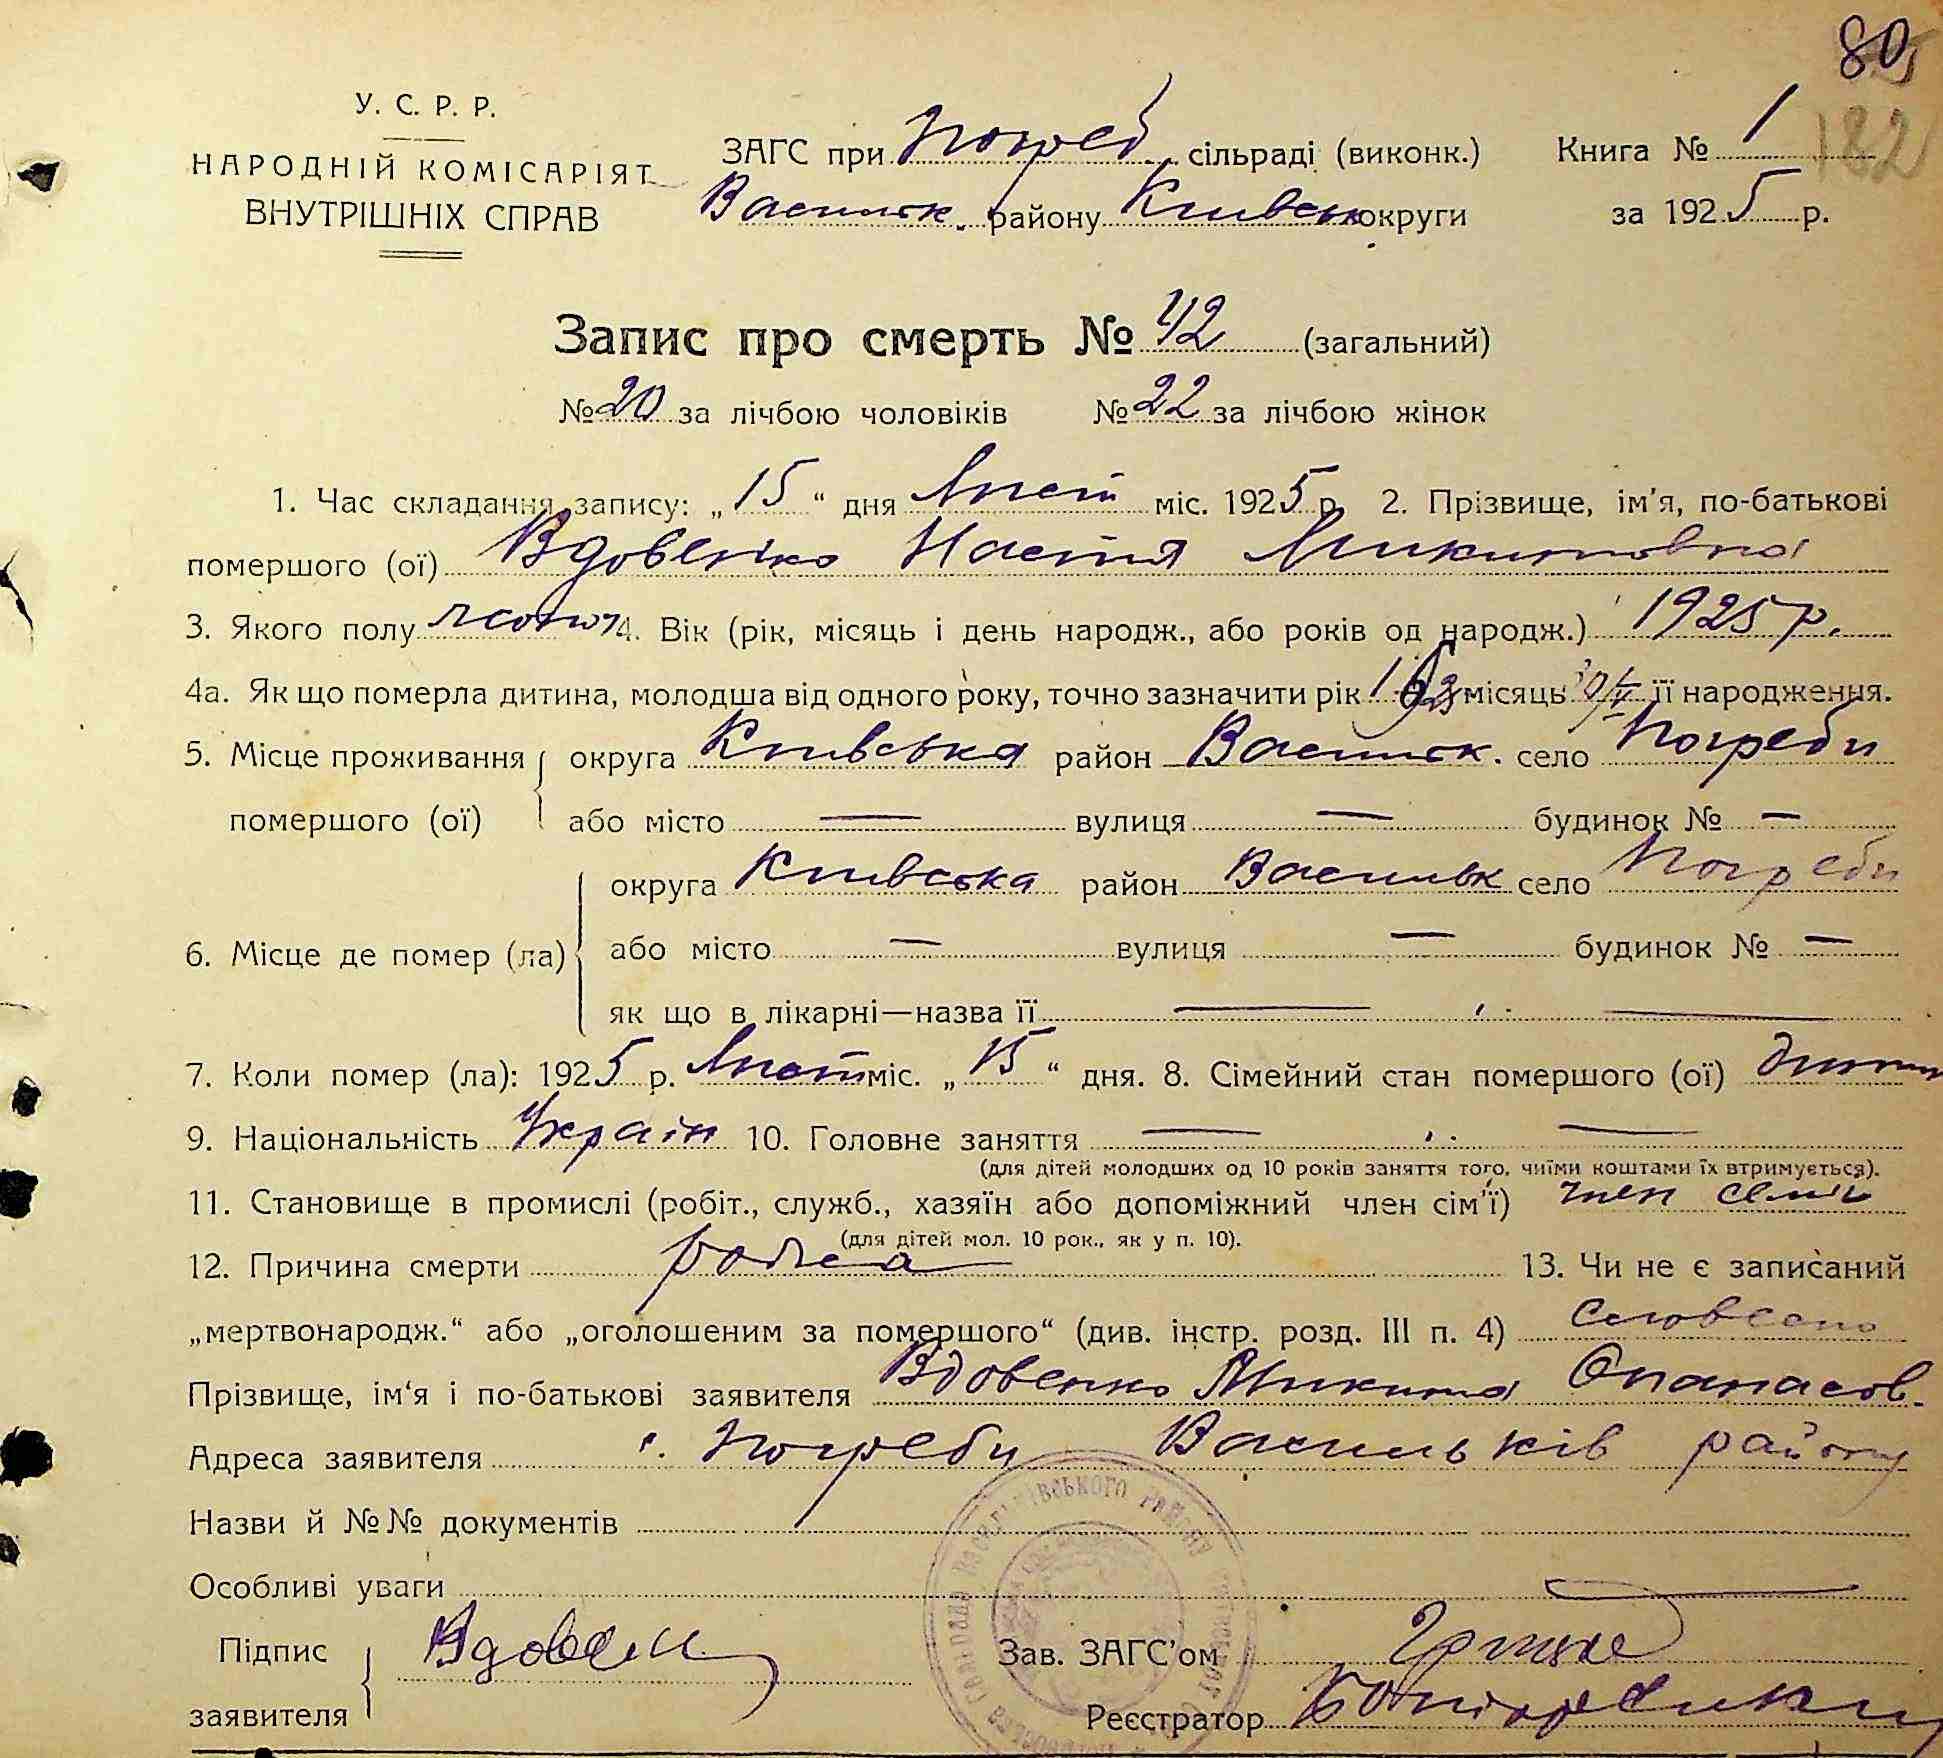 80
182
У. С. Р. Р.
НАРОДНІЙ КОМІСАРІЯТ
ВНУТРІШНІХ СПРАВ
ЗАГС при Погреб сільраді (виконк.) Книга № 1
Васильк. району Київськ округи за 1925 р.
Запис про смерть № 42 (загальний)
№ 20 за лічбою чоловіків № 22 за лічбою жінок
1. Час складання запису: „15“ дня Лист міс. 1925 р. 2. Прізвище, ім'я, по-батькові
помершого (ої) Вдовенко Настя Микитовна
3. Якого полу жоноч 4. Вік (рік, місяць і день народж., або років од народж.) 1925 р.
4а. Як що померла дитина, молодша від одного року, точно зазначити рік місяць її народження.
5. Місце проживання округа Київська район Васильк. село Погреби
помершого (ої) або місто — вулиця — будинок № —
округа Київська район Васильк село Погреби
6. Місце де помер (ла) або місто — вулиця — будинок № —
як що в лікарні—назва її —
7. Коли помер (ла): 1925 р. Лист міс. „15“ дня. 8. Сімейний стан помершого (ої) дитин
9. Національність Україн 10. Головне заняття —
(для дітей молодших од 10 років заняття того, чиїми коштами їх втримується).
11. Становище в промислі (робіт., служб., хазяїн або допоміжний член сім'ї) член семії
(для дітей мол. 10 рок., як у п. 10).
12. Причина смерти 13. Чи не є записаний
„мертвонародж.“ або „оголошеним за помершого“ (див. інстр. розд. III п. 4) словесно
Прізвище, ім'я і по-батькові заявителя Вдовенко Микита Опанасов.
Адреса заявителя с. Погреби Васильків району
Назви й №№ документів
Особливі уваги
Підпис Вдовен Зав. ЗАГС'ом
заявителя Реєстратор